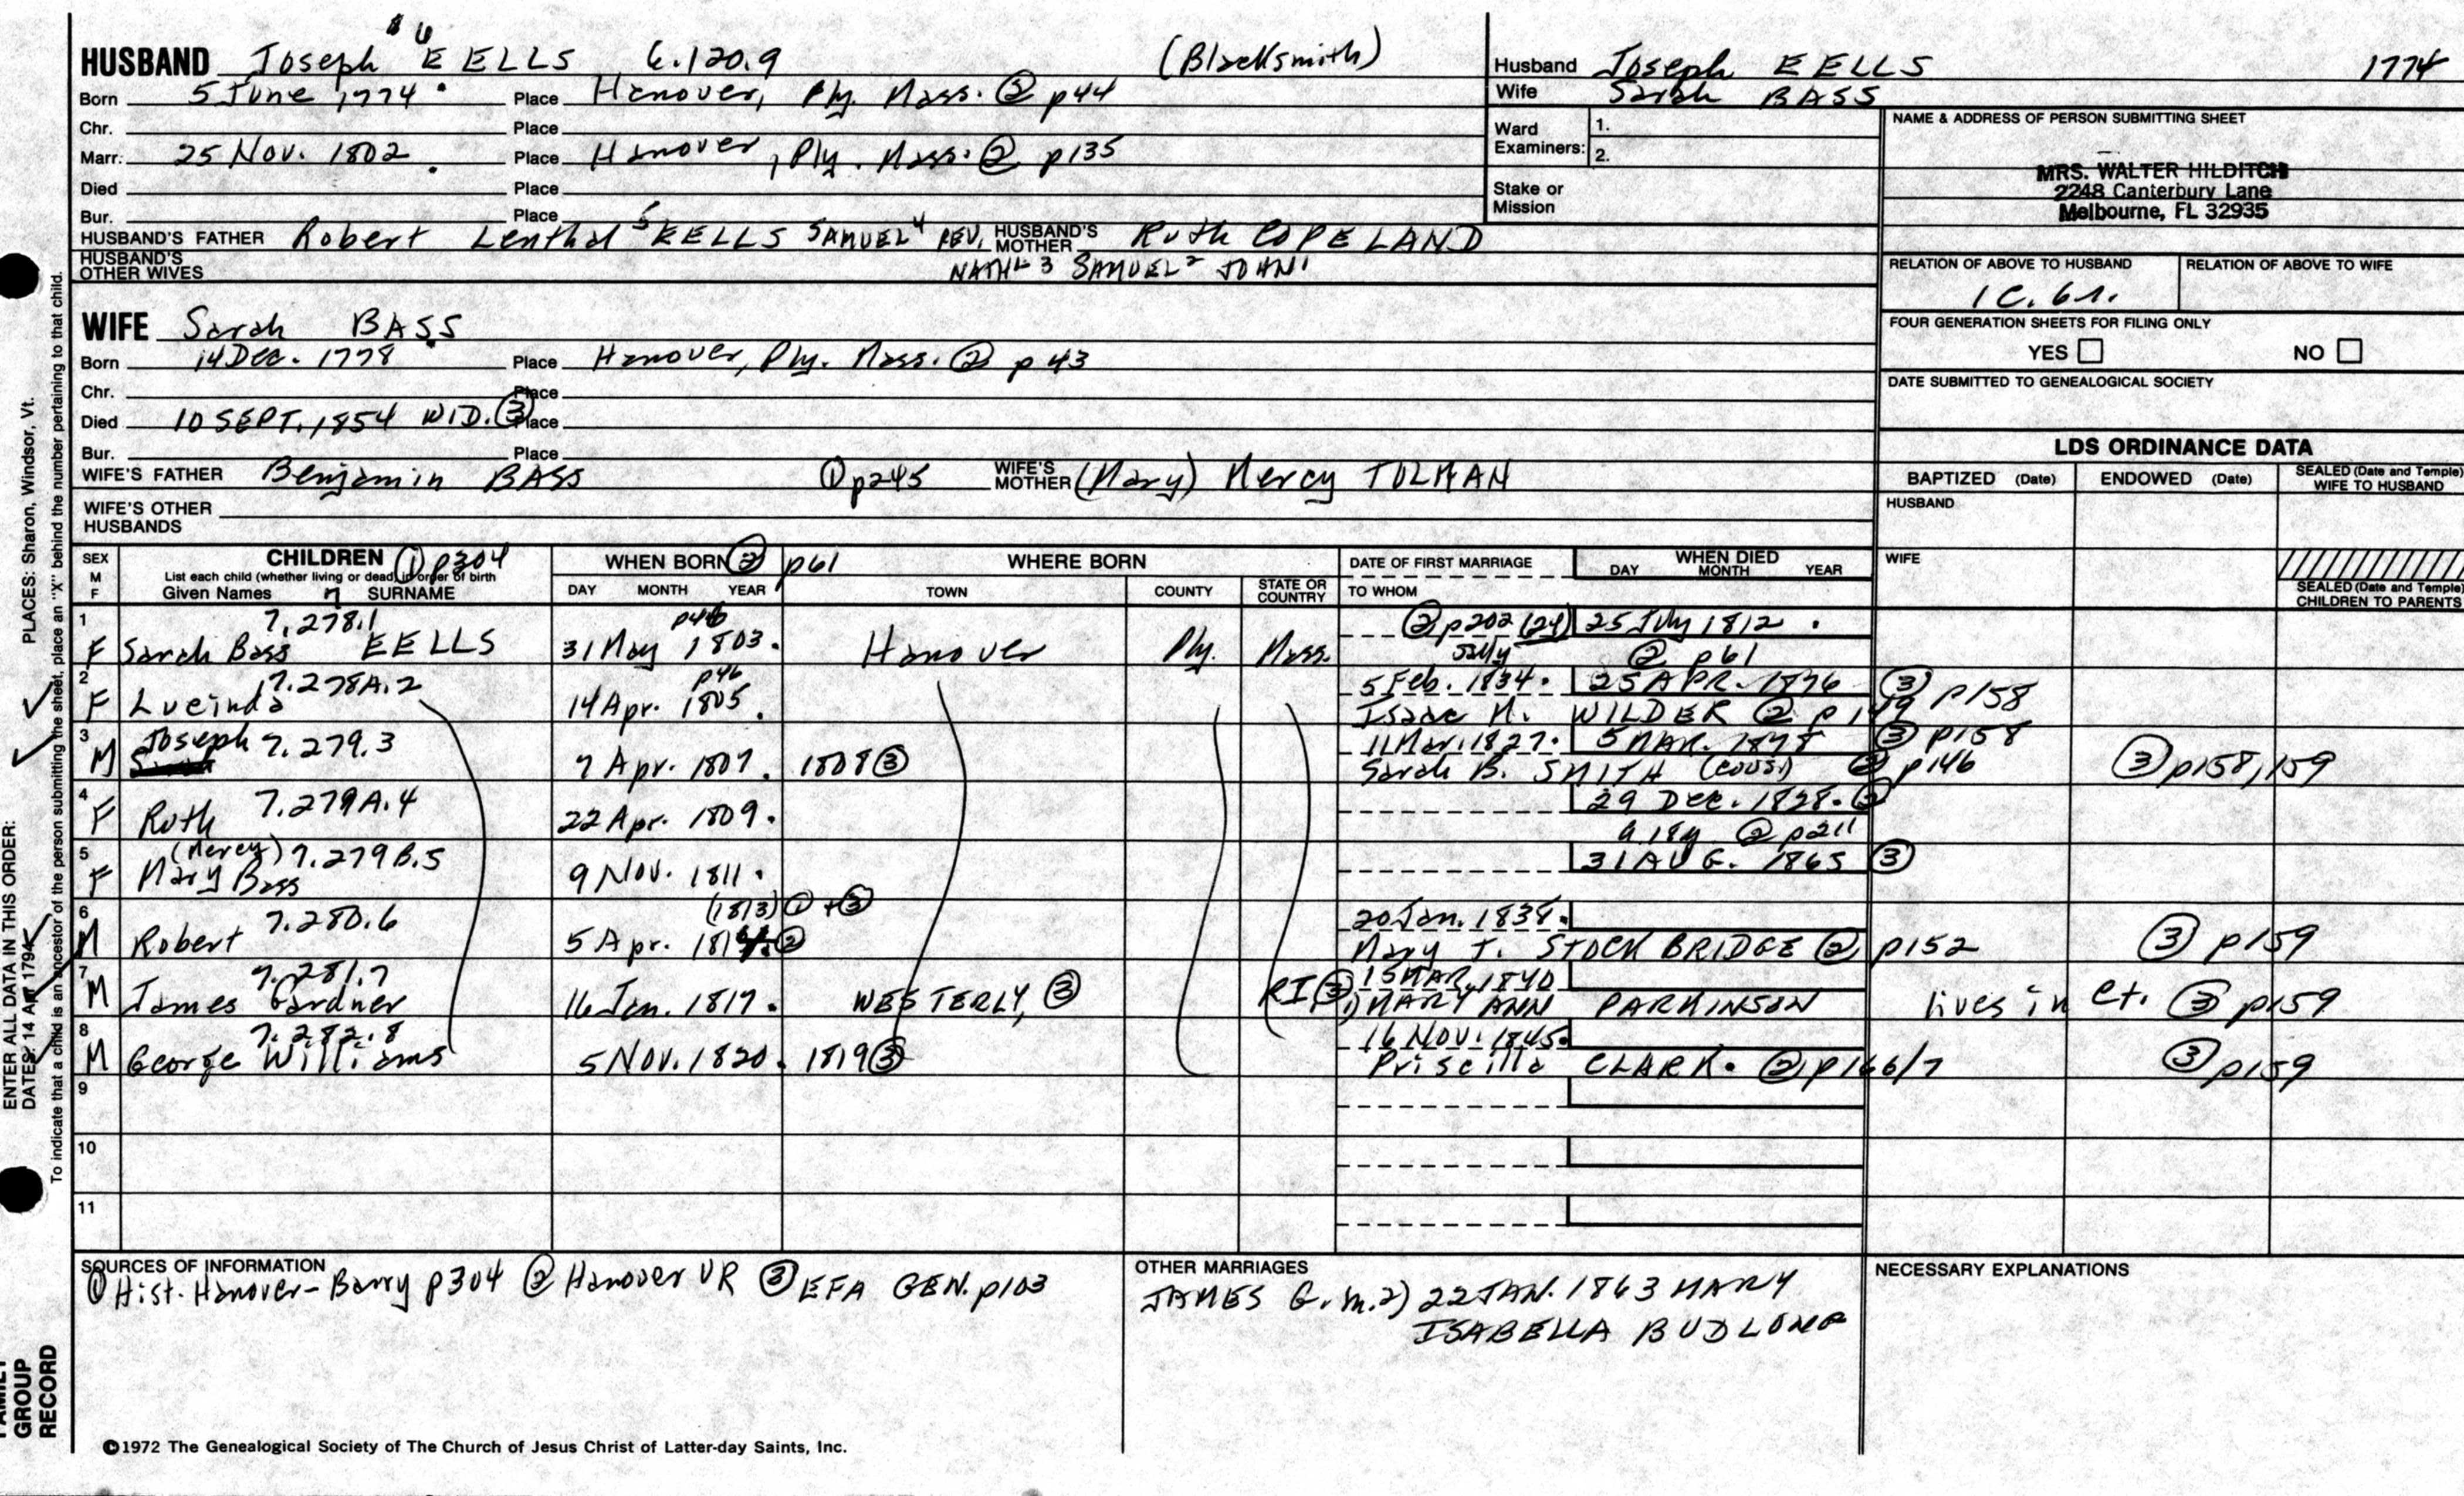 HUSBAND Joseph 6 EELLS 6.120.9 (Blacksmith)
Born 5 June 1774 Place Hanover, Ply. Mass. ② p44
Chr. Place
Marr. 25 Nov. 1802 Place Hanover, Ply. Mass. ② p135
Died Place
Bur. Place
HUSBAND'S FATHER Robert Lenthal 5 EELLS SAMUEL 4 REV. HUSBAND'S MOTHER Ruth COPELAND
HUSBAND'S OTHER WIVES NATHL 3 SAMUEL 2 JOHN 1
Husband Joseph EELLS 1774
Wife Sarah BASS
Ward Examiners: 1.
2.
Stake or Mission
NAME & ADDRESS OF PERSON SUBMITTING SHEET
MRS. WALTER HILDITCH
2248 Canterbury Lane
Melbourne, FL 32935
RELATION OF ABOVE TO HUSBAND RELATION OF ABOVE TO WIFE
1 C. 6 r.
FOUR GENERATION SHEETS FOR FILING ONLY
YES NO
DATE SUBMITTED TO GENEALOGICAL SOCIETY
WIFE Sarah BASS
Born 14 Dec. 1778 Place Hanover, Ply. Mass. ② p 43
Chr. Place
Died 10 SEPT. 1854 WID. ③ Place
Bur. Place
WIFE'S FATHER Benjamin BASS ① p245 WIFE'S MOTHER (Mary) Mercy TOLMAN
WIFE'S OTHER HUSBANDS
LDS ORDINANCE DATA
BAPTIZED (Date) ENDOWED (Date) SEALED (Date and Temple) WIFE TO HUSBAND
HUSBAND
WIFE
SEALED (Date and Temple) CHILDREN TO PARENTS
SEX M F CHILDREN ① p304 WHEN BORN ② p61 WHERE BORN DATE OF FIRST MARRIAGE WHEN DIED
List each child (whether living or dead) in order of birth
Given Names 7 SURNAME DAY MONTH YEAR TOWN COUNTY STATE OR COUNTRY TO WHOM DAY MONTH YEAR
1 7.278.1 p46 ② p202 (24) 25 July 1812
F Sarah Bass EELLS 31 May 1803. Hanover Ply. Mass. ② p61
2 7.278A.2 p46 5 Feb. 1834. 25 APR. 1876 ③ p158
F Lucinda 14 Apr. 1805. Isaac H. WILDER ② p 149
3 Joseph 7.279.3 11 Mar. 1827. 5 MAR. 1878 ③ p158
M 7 Apr. 1807. 1808 ③ Sarah B. SMITH (cous.) ② p146 ③ p158,159
4 7.279A.4 29 Dec. 1828. ②
F Ruth 22 Apr. 1809. a.18y ② p211
5 (Mercy) 7.279B.5 31 AUG. 1865 ③
F Mary Bass 9 Nov. 1811.
6 7.280.6 (1813) ① + ③ 20 Jan. 1838.
M Robert 5 Apr. 1814. ② Mary T. STOCKBRIDGE ② p152 ③ p159
7 7.281.7 15 MAR. 1840
M James Gardner 16 Jan. 1817. WESTERLY, ③ RI ③ 1) MARY ANN PARKINSON lives in Ct. ③ p159
8 7.282.8 16 NOV. 1845.
M George Williams 5 Nov. 1820. 1819 ③ Priscilla CLARK. ② p166/7 ③ p159
9
10
11
SOURCES OF INFORMATION
① Hist. Hanover - Barry p304 ② Hanover VR ③ EFA GEN. p103
OTHER MARRIAGES
JAMES G. m.2) 22 JAN. 1863 MARY
ISABELLA BUDLONG
NECESSARY EXPLANATIONS
©1972 The Genealogical Society of The Church of Jesus Christ of Latter-day Saints, Inc.
ENTER ALL DATA IN THIS ORDER:
DATES: 14 Apr 1794
PLACES: Sharon, Windsor, Vt.
To indicate that a child is an ancestor of the person submitting the sheet, place an "X" behind the number pertaining to that child.
FAMILY GROUP RECORD